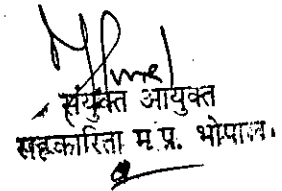 संयुक्त आयुक्त
सहकारिता म.प्र. भोपाल.